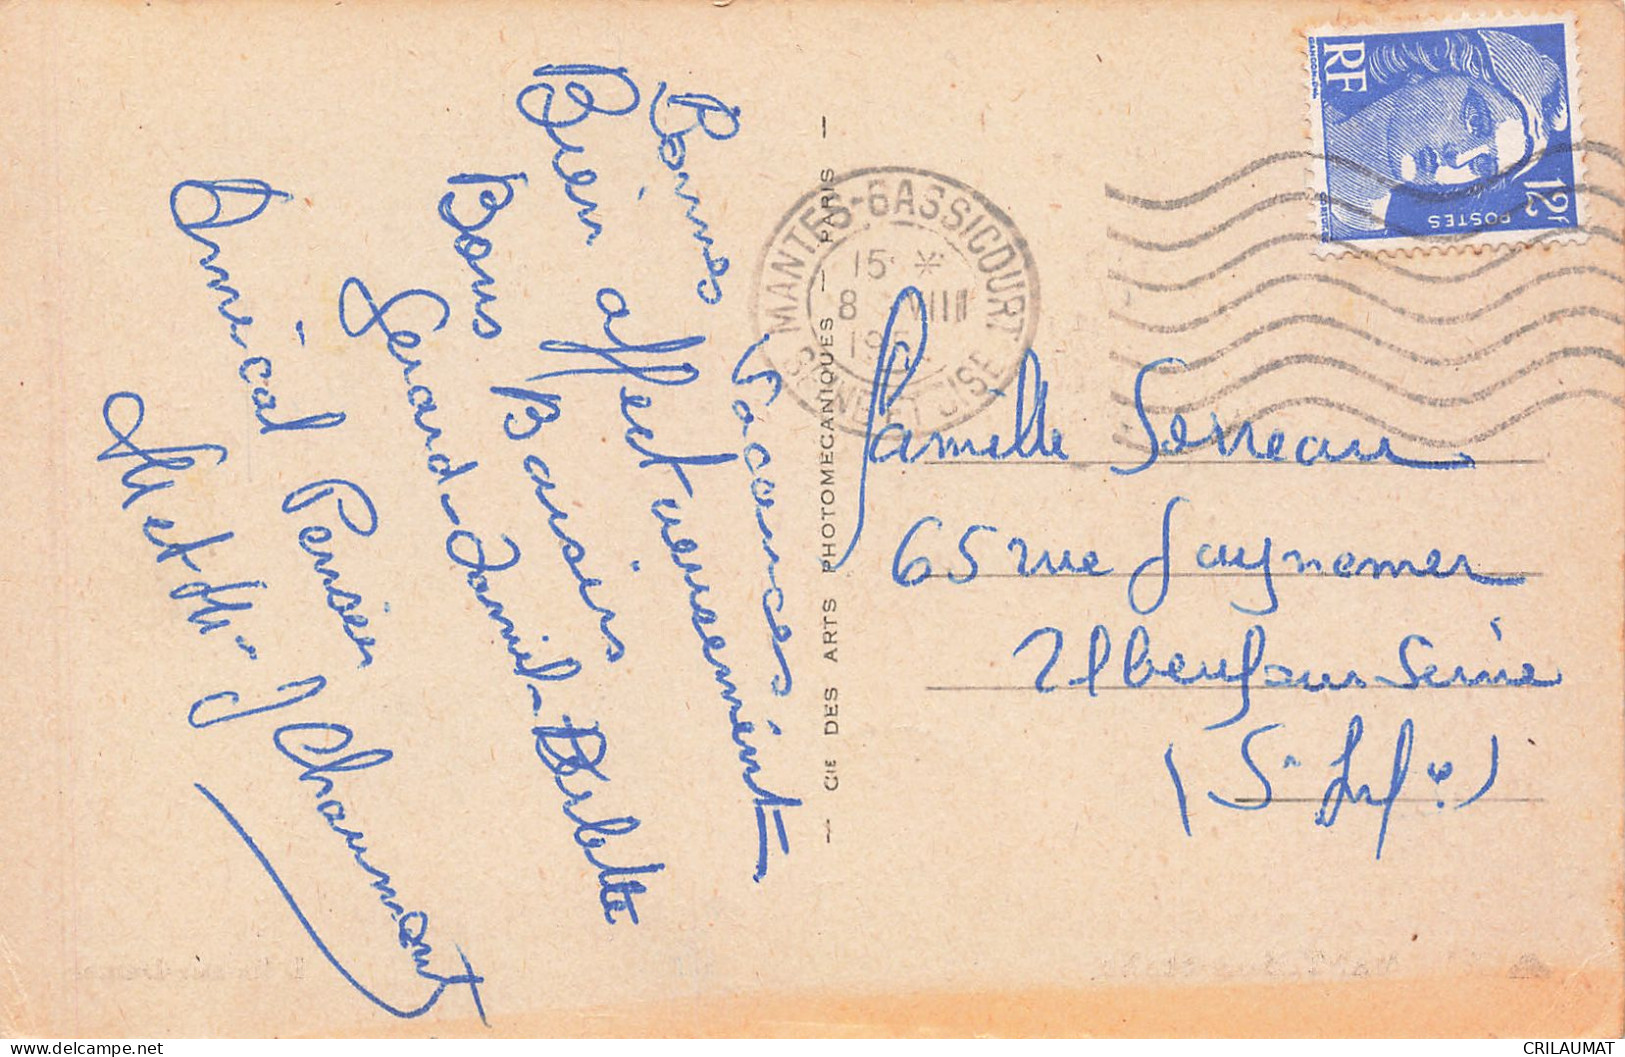 Bonnes Vacances
Bien affectueusement
Bons Baisers
Gérard - Daniel - Arlette
Amical Pensées
M et Mme J Chaumont
— CIE DES ARTS PHOTOMECANIQUES — PARIS —
MANTES-GASSICOURT
15 *
8 VIII
195
SEINE ET OISE
RF
12F
POSTES
GANDON
Famille Serreau
65 rue Guynemer
Elbeuf sur Seine
(Se Infre)
CRILAUMAT